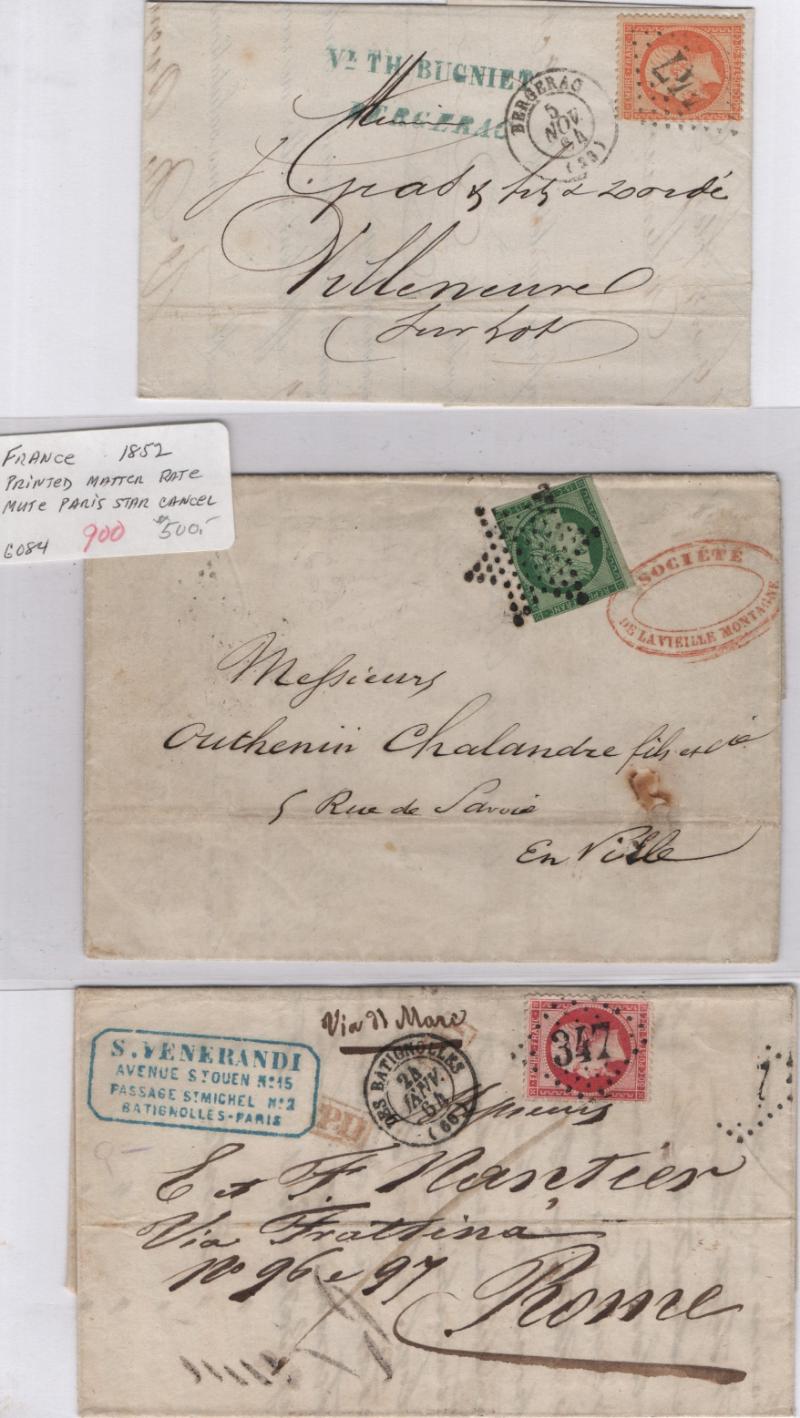 Vᵉ TH. BUGNIET
BERGERAC
BERGERAC
5
NOV.
64
(23)
EMPIRE FRANC
Villeneuve
Sur Lot
FRANCE 1852
PRINTED MATTER RATE
MUTE PARIS STAR CANCEL
6084 900 500.-
REPUB. FRANC
SOCIÉTÉ
DE LA VIEILLE MONTAGNE
Messieurs
Outhenin Chalandre fils et Cie
5 Rue de Savoie
En Ville
S. VENERANDI
AVENUE ST OUEN No. 15
PASSAGE ST MICHEL No. 2
BATIGNOLLES-PARIS
Via di Mare
PD
LES BATIGNOLLES
24
JANV.
64
(60)
347
EMPIRE FRANC
Messieurs
E et F. Nantier
Via Frattina
No 96 e 97
Rome